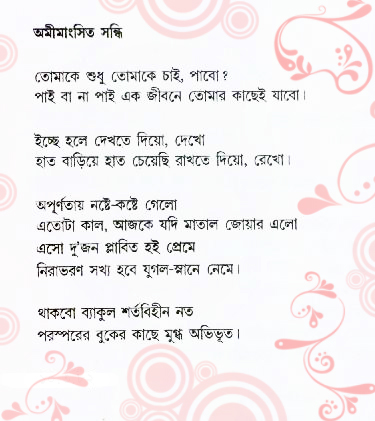 অমীমাংসিত সন্ধি
তোমাকে শুধু তোমাকে চাই, পাবো?
পাই বা না পাই এক জীবনে তোমার কাছেই যাবো।
ইচ্ছে হলে দেখতে দিয়ো, দেখো
হাত বাড়িয়ে হাত চেয়েছি রাখতে দিয়ো, রেখো।
অপূর্ণতায় নষ্টে-কষ্টে গেলো
এতোটা কাল, আজকে যদি মাতাল জোয়ার এলো
এসো দু’জন প্লাবিত হই প্রেমে
নিরাভরণ সখ্য হবে যুগল-স্নানে নেমে।
থাকবো ব্যাকুল শর্তবিহীন নত
পরস্পরের বুকের কাছে মুগ্ধ অভিভূত।